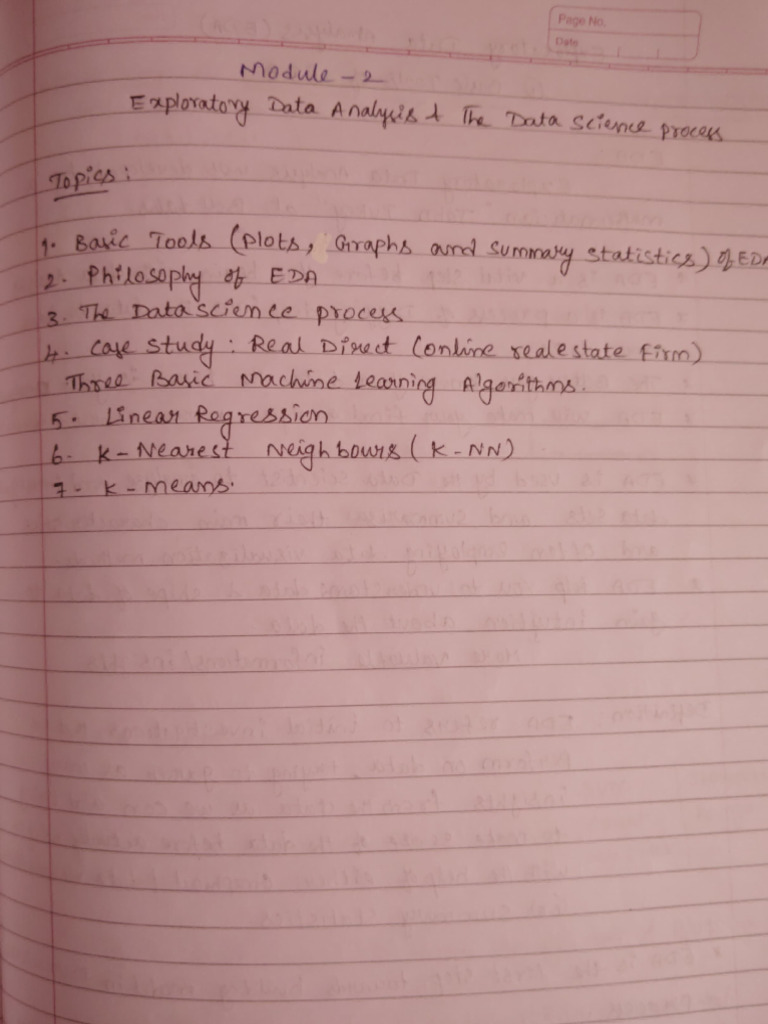 Page No.
Date
Module - 2
Exploratory Data Analysis & The Data Science process
Topics:
1. Basic Tools (Plots, Graphs and summary statistics) of EDA
2. Philosophy of EDA
3. The Data science process
4. Case Study: Real Direct (online real estate firm)
Three Basic Machine Learning Algorithms.
5. Linear Regression
6. K-Nearest Neighbours (K-NN)
7- K-means.